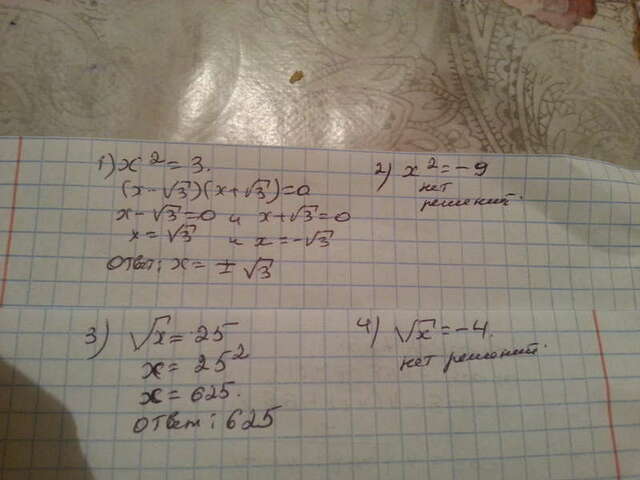 1) x² = 3.
(x-√3)(x+√3)=0
x-√3=0 и x+√3=0
x=√3 и x=-√3
Ответ: x= ±√3
2) x²=-9
нет
решений.
3) √x=25
x=25²
x=625.
Ответ: 625
4) √x=-4.
нет решений.